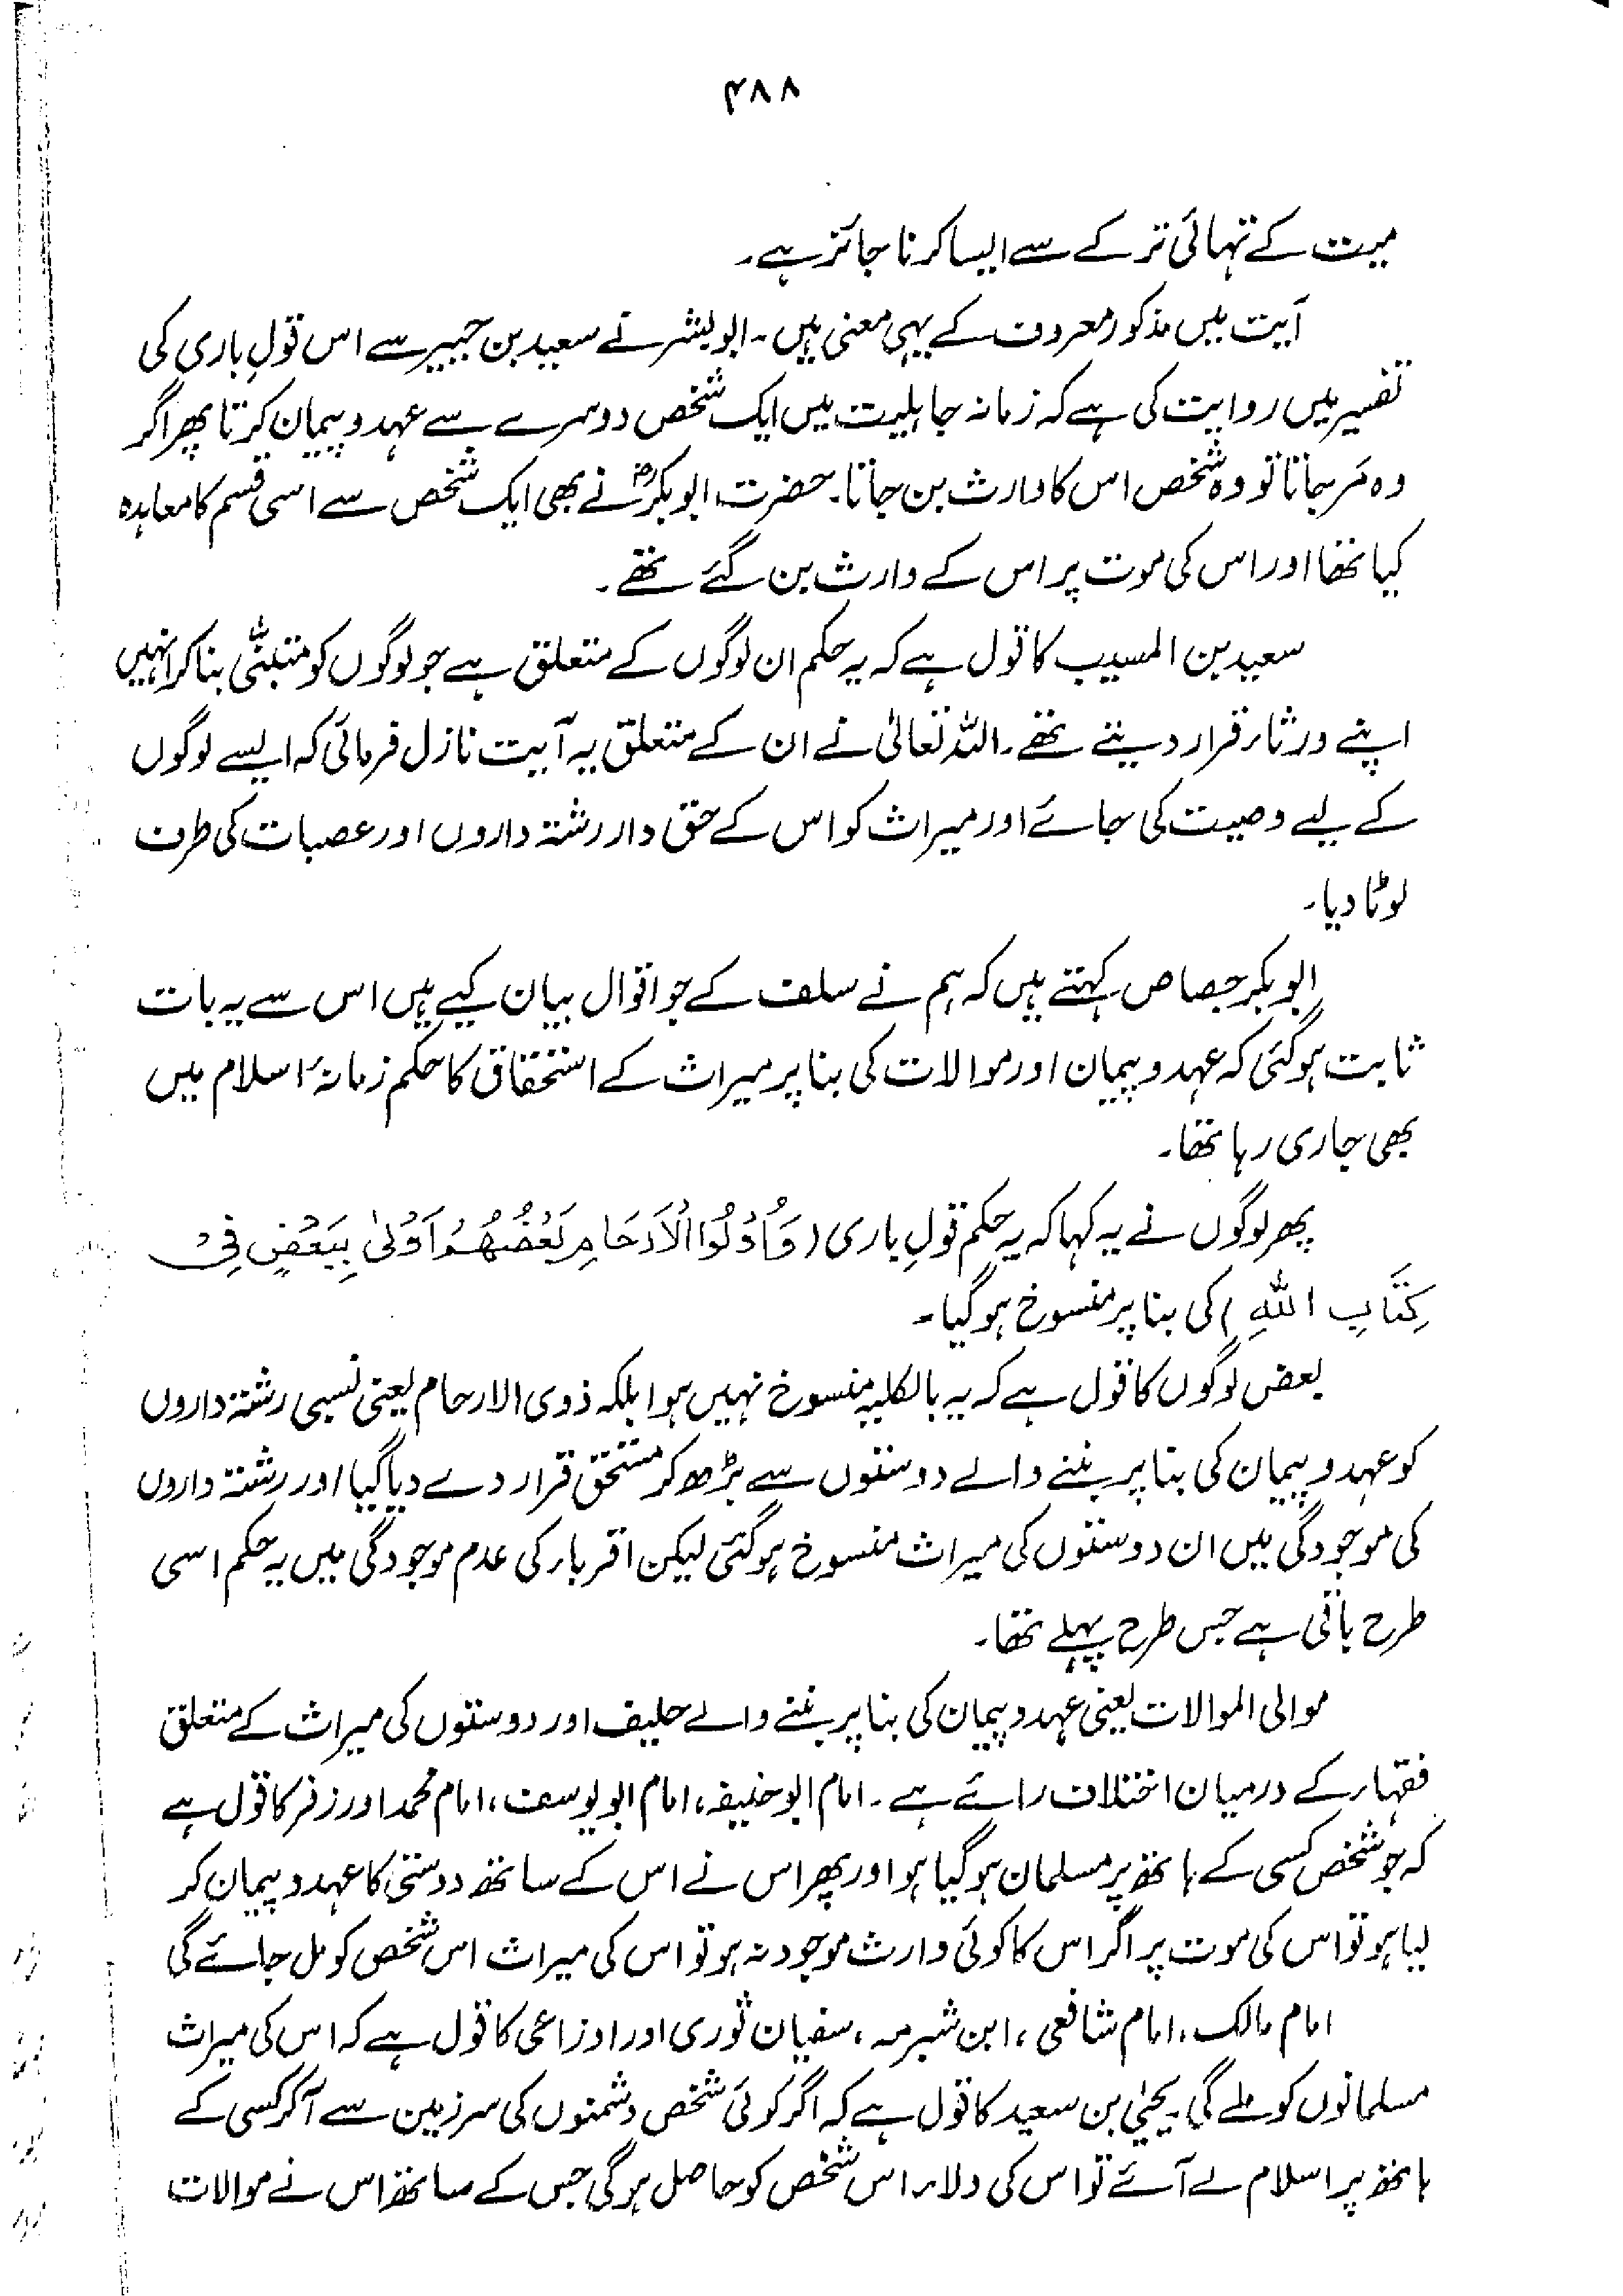 ۴۸۸
میت کے تہائی ترکے سے ایسا کرنا جائز ہے۔
آیت میں مذکور معروف کے یہی معنی ہیں۔ ابوبشر نے سعید بن جبیر سے اس قولِ باری کی
تفسیر میں روایت کی ہے کہ زمانہ جاہلیت میں ایک شخص دوسرے سے عہد و پیمان کرتا پھر اگر
وہ مَر جاتا تو وہ شخص اس کا وارث بن جاتا۔ حضرت ابوبکرؓ نے بھی ایک شخص سے اسی قسم کا معاہدہ
کیا تھا اور اس کی موت پر اس کے وارث بن گئے تھے۔
سعید بن المسیب کا قول ہے کہ یہ حکم ان لوگوں کے متعلق ہے جو لوگوں کو متبنّٰی بنا کر انہیں
اپنے ورثاء قرار دیتے تھے۔ اللہ تعالیٰ نے ان کے متعلق یہ آیت نازل فرمائی کہ ایسے لوگوں
کے لیے وصیت کی جائے اور میراث کو اس کے حق دار رشتہ داروں اور عصبات کی طرف
لوٹا دیا۔
ابوبکر جصاص کہتے ہیں کہ ہم نے سلف کے جو اقوال بیان کیے ہیں اس سے یہ بات
ثابت ہوگئی کہ عہد و پیمان اور موالات کی بنا پر میراث کے استحقاق کا حکم زمانۂ اسلام میں
بھی جاری رہا تھا۔
پھر لوگوں نے یہ کہا کہ یہ حکم قولِ باری (وَاُولُوا الْاَرْحَامِ بَعْضُهُمْ اَوْلٰى بِبَعْضٍ فِيْ
كِتَابِ اللهِ) کی بنا پر منسوخ ہوگیا۔
بعض لوگوں کا قول ہے کہ یہ بالکلیہ منسوخ نہیں ہوا بلکہ ذوی الارحام یعنی نسبی رشتہ داروں
کو عہد و پیمان کی بنا پر بننے والے دوستوں سے بڑھ کر مستحق قرار دے دیا گیا اور رشتہ داروں
کی موجودگی میں ان دوستوں کی میراث منسوخ ہوگئی لیکن اقرباء کی عدم موجودگی میں یہ حکم اسی
طرح باقی ہے جس طرح پہلے تھا۔
موالی الموالات یعنی عہد و پیمان کی بنا پر بننے والے حلیف اور دوستوں کی میراث کے متعلق
فقہاء کے درمیان اختلاف رائے ہے۔ امام ابوحنیفہ، امام ابویوسف، امام محمد اور زفر کا قول ہے
کہ جو شخص کسی کے ہاتھ پر مسلمان ہوگیا ہو اور پھر اس نے اس کے ساتھ دوستی کا عہد و پیمان کر
لیا ہو تو اس کی موت پر اگر اس کا کوئی وارث موجود نہ ہو تو اس کی میراث اس شخص کو مل جائے گی
امام مالک، امام شافعی، ابن شبرمہ، سفیان ثوری اور اوزاعی کا قول ہے کہ اس کی میراث
مسلمانوں کو ملے گی۔ یحییٰ بن سعید کا قول ہے کہ اگر کوئی شخص دشمنوں کی سرزمین سے آکر کسی کے
ہاتھ پر اسلام لے آئے تو اس کی ولاء اس شخص کو حاصل ہوگی جس کے ساتھ اس نے موالات